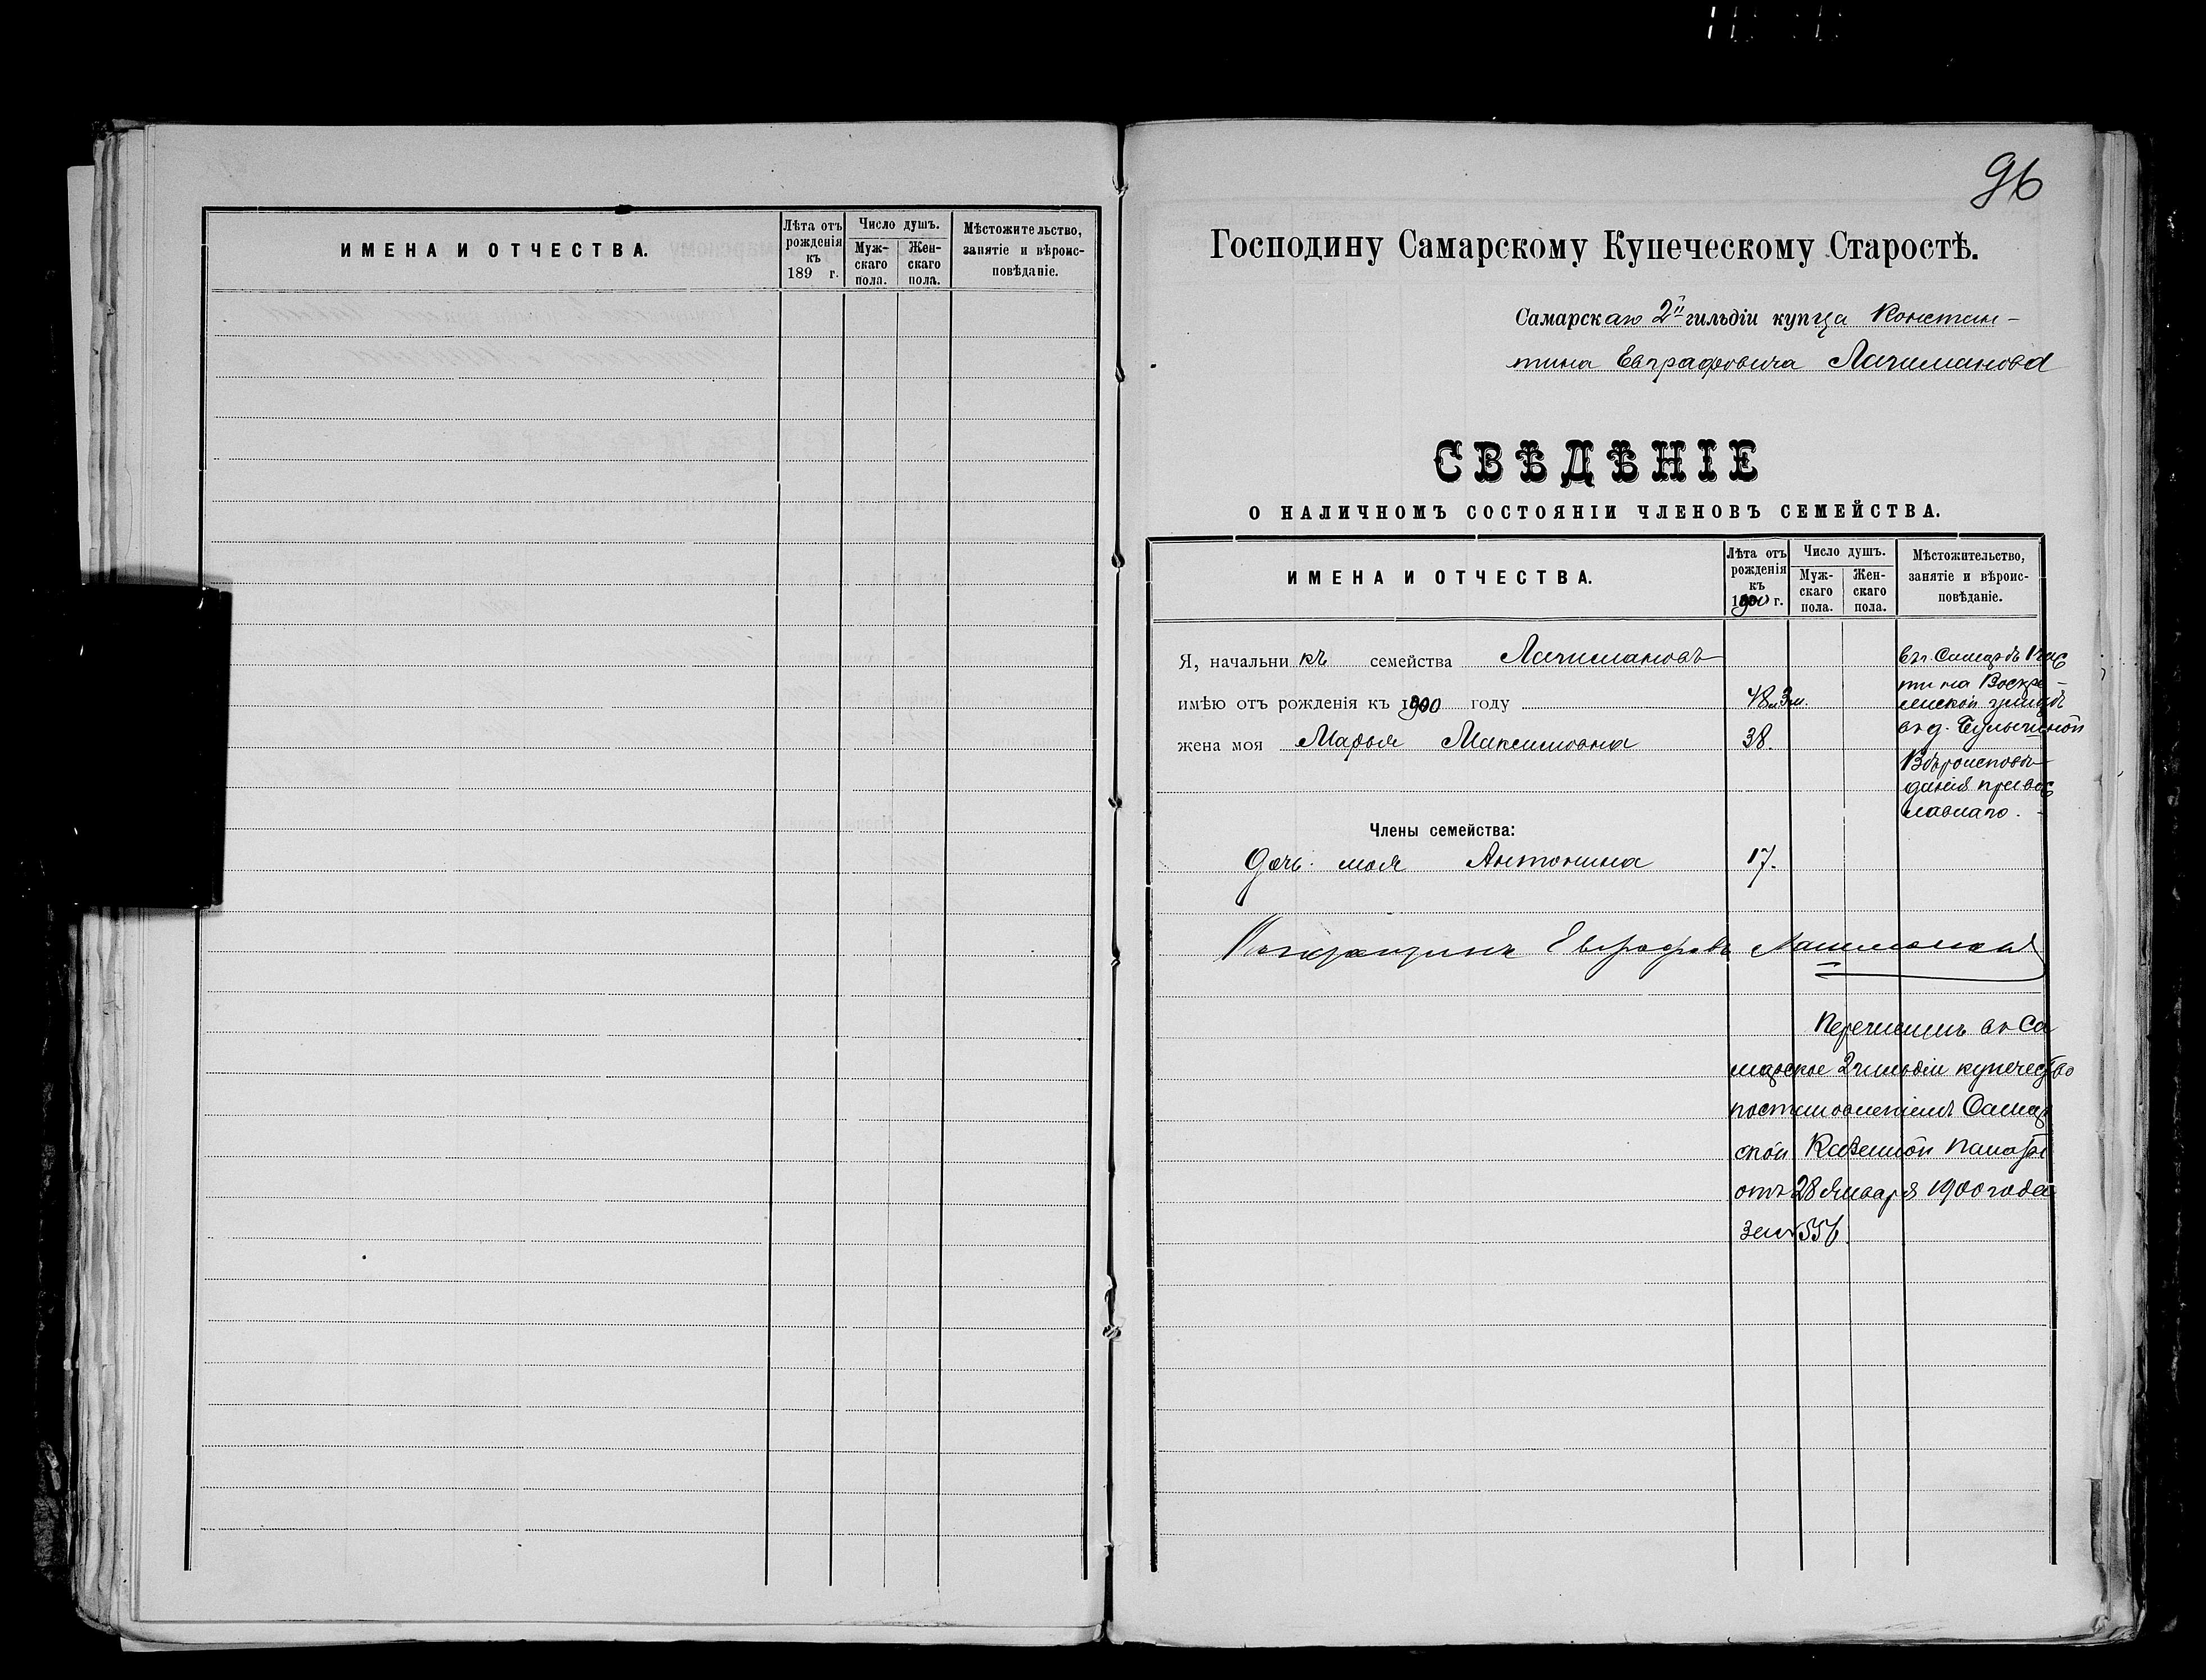 ИМЕНА И ОТЧЕСТВА.
Лѣта отъ рожденія къ 189 г.
Число душъ.
Муж-скаго пола.
Жен-скаго пола.
Мѣстожительство, занятіе и вѣроис-повѣданіе.
96
Господину Самарскому Купеческому Старостѣ.
Самарскаго 2й гильдіи купца Констан-
тина Евграфовича Лачиманова
СВѢДѢНІЕ
О НАЛИЧНОМЪ СОСТОЯНІИ ЧЛЕНОВЪ СЕМЕЙСТВА.
ИМЕНА И ОТЧЕСТВА.
Лѣта отъ рожденія къ 1900 г.
Число душъ.
Муж-скаго пола.
Жен-скаго пола.
Мѣстожительство,
занятіе и вѣроис-
повѣданіе.
Я, начальникъ семейства Лачимановъ
имѣю отъ рожденія къ 1900 году 48 л. 3 м.
жена моя Марья Максимовна 38.
въ г. Самарѣ 1 час
ти на Воскре-
сенской улицѣ
въ д.
Вѣроисповѣ-
данія правос
лавнаго.
Члены семейства:
Дочь моя Антонина 17.
Константинъ Евграфовъ Лачимановъ
Перечисленъ въ Са
марское 2 гильдіи купечество
постановленіемъ Самар
ской Казенной Палаты
отъ 28 Января 1900 года
за № 556.